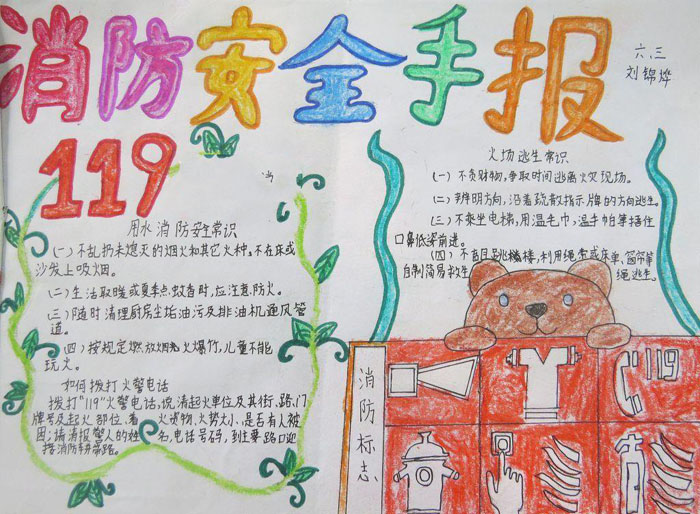 消防安全手报
六、三
刘锦烨
119
用水消防安全常识
(一)不乱扔未熄灭的烟火和其它火种,不在床或
沙发上吸烟。
(二)生活取暖或夏季点蚊香时,应注意防火。
(三)随时清理厨房尘垢油污及排油机通风管
道。
(四)按规定燃放烟火爆竹,儿童不能
玩火。
如何拨打火警电话
拨打"119"火警电话,说清起火单位及其街、路、门
牌号及起火部位、着火货物、火势大小、是否有人被
困;请清报警人的姓名,电话号码,到主要路口迎
接消防车带路。
火场逃生常识
(一)不贪财物,争取时间逃离火灾现场。
(二)辨明方向,沿着疏散指示牌的方向逃生。
(三)不乘坐电梯,用湿毛巾,湿手帕等捂住
口鼻低姿前进。
(四)不盲目跳楼,利用绳索或床单、窗帘等
自制简易救生绳逃生。
消防标志
119